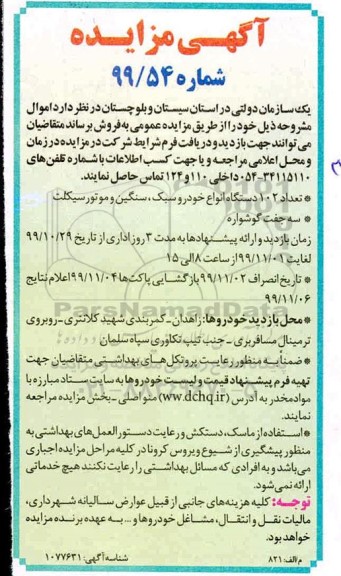 آگهی مزایده
شماره ۹۹/۵۴
یک سازمان دولتی در استان سیستان و بلوچستان در نظر دارد اموال
مشروحه ذیل خود را از طریق مزایده عمومی به فروش برساند متقاضیان
می توانند جهت بازدید و دریافت فرم شرایط شرکت در مزایده در زمان
و محل اعلامی مراجعه و یا جهت کسب اطلاعات با شماره تلفن های
۰۵۴-۳۴۱۱۵۱۱۰ داخلی ۱۱۰ و ۱۲۴ تماس حاصل نمایند.
* تعداد ۱۰۲ دستگاه انواع خودرو سبک، سنگین و موتور سیکلت
* سه جفت گوشواره
زمان بازدید و ارائه پیشنهادها به مدت ۳ روز اداری از تاریخ ۹۹/۱۰/۲۹
لغایت ۹۹/۱۱/۰۱ از ساعت ۸ الی ۱۵
* تاریخ انصراف ۹۹/۱۱/۰۲ بازگشایی پاکت ها ۹۹/۱۱/۰۴ اعلام نتایج
۹۹/۱۱/۰۶
* محل بازدید خودروها: زاهدان - کمربندی شهید کلانتری - روبروی
ترمینال مسافربری - جنب تیپ تکاوری سپاه سلمان
* ضمناً به منظور رعایت پروتکل های بهداشتی متقاضیان جهت
تهیه فرم پیشنهاد قیمت و لیست خودروها به سایت ستاد مبارزه با
مواد مخدر به آدرس (ww.dchq.ir) منو اصلی - بخش مزایده مراجعه
نمایند.
* استفاده از ماسک، دستکش و رعایت دستورالعمل های بهداشتی به
منظور پیشگیری از شیوع ویروس کرونا در کلیه مراحل مزایده اجباری
می باشد و به افرادی که مسائل بهداشتی را رعایت نکنند هیچ خدماتی
ارائه نمی شود.
توجه: کلیه هزینه های جانبی از قبیل عوارض سالیانه شهرداری،
مالیات نقل و انتقال، مشاغل خودروها و ... به عهده برنده مزایده
خواهد بود.
م الف: ۸۲۱
شناسه آگهی: ۱۰۷۷۶۳۱